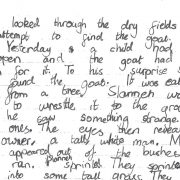 looked through the dry fields
attempt to find the goat.
Yesterday a child had
open and the goat had
for it. To his surprise
found the goat. It was eati
from a tree. Slannen we
to wrestle it to the grou
he saw something strange
ones. The eyes then revea
owner, a tall, white man. M
appeared out of the bushes
run. Slannen sprinted. They sprinte
into some tall grass. They